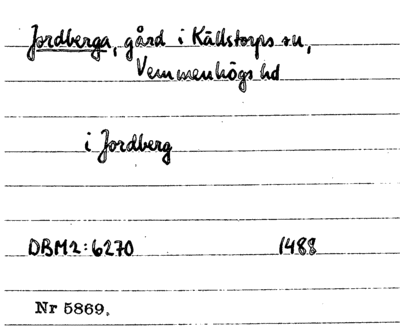 Jordberga, gård i Källstorps sn,
Vemmenhögs hd
i Jordberg
DBM2:6270 1488
Nr 5869.